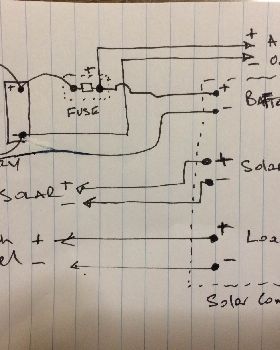 + A
- O
+
+
+
FUSE
BATTE
-
-
+
Solar
SOLAR +
-
-
+
+
Loa
-
-
Solar Con